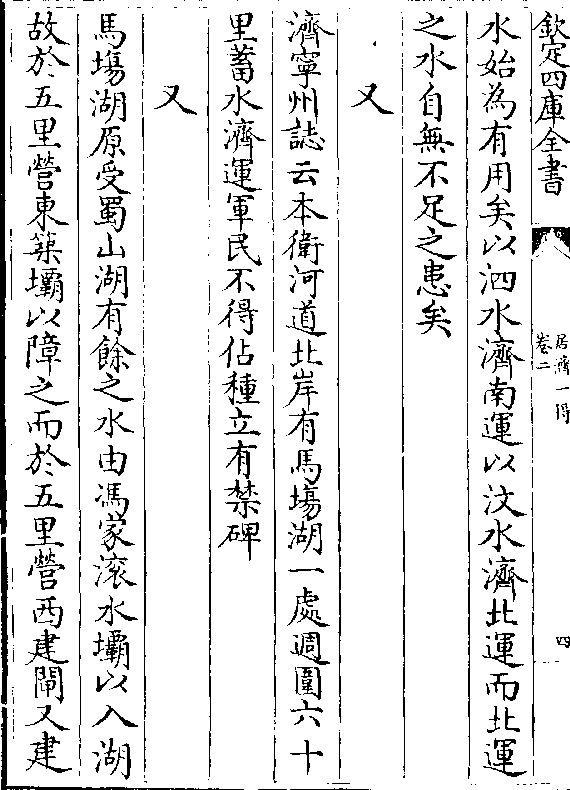 欽定四庫全書
居濟一得
卷二
四
水始為有用矣以泗水濟南運以汶水濟北運而北運
之水自無不足之患矣
又
濟寧州誌云本衛河道北岸有馬塲湖一處週圍六十
里蓄水濟運軍民不得佔種立有禁碑
又
馬塲湖原受蜀山湖有餘之水由馮家滚水壩以入湖
故於五里營東築壩以障之而於五里營西建閘又建